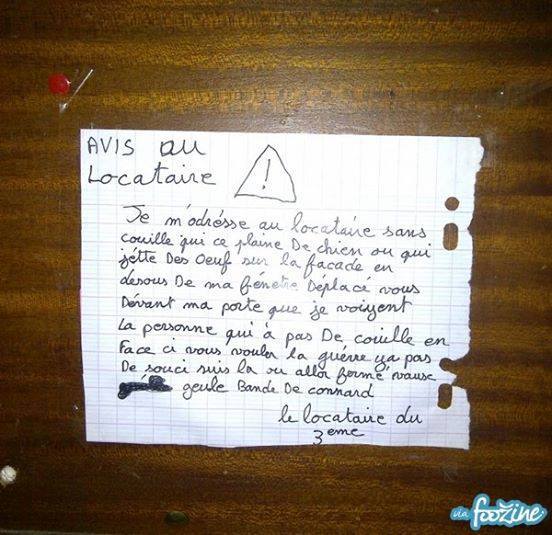 AVIS au
Locataire
!
Je m'adrésse au locataire sans
couille qui ce plaine De chien ou qui
jétte Des Oeuf sur la facade en
desous De ma fénetre Déplacé vous
Dévant ma porte que je voiyent
La personne qui à pas De couille en
Face ci vous vouler la guére ya pas
De souci suis la ou aller formé vausc
geule Bande De connard
le locataire du
3eme
via foozine